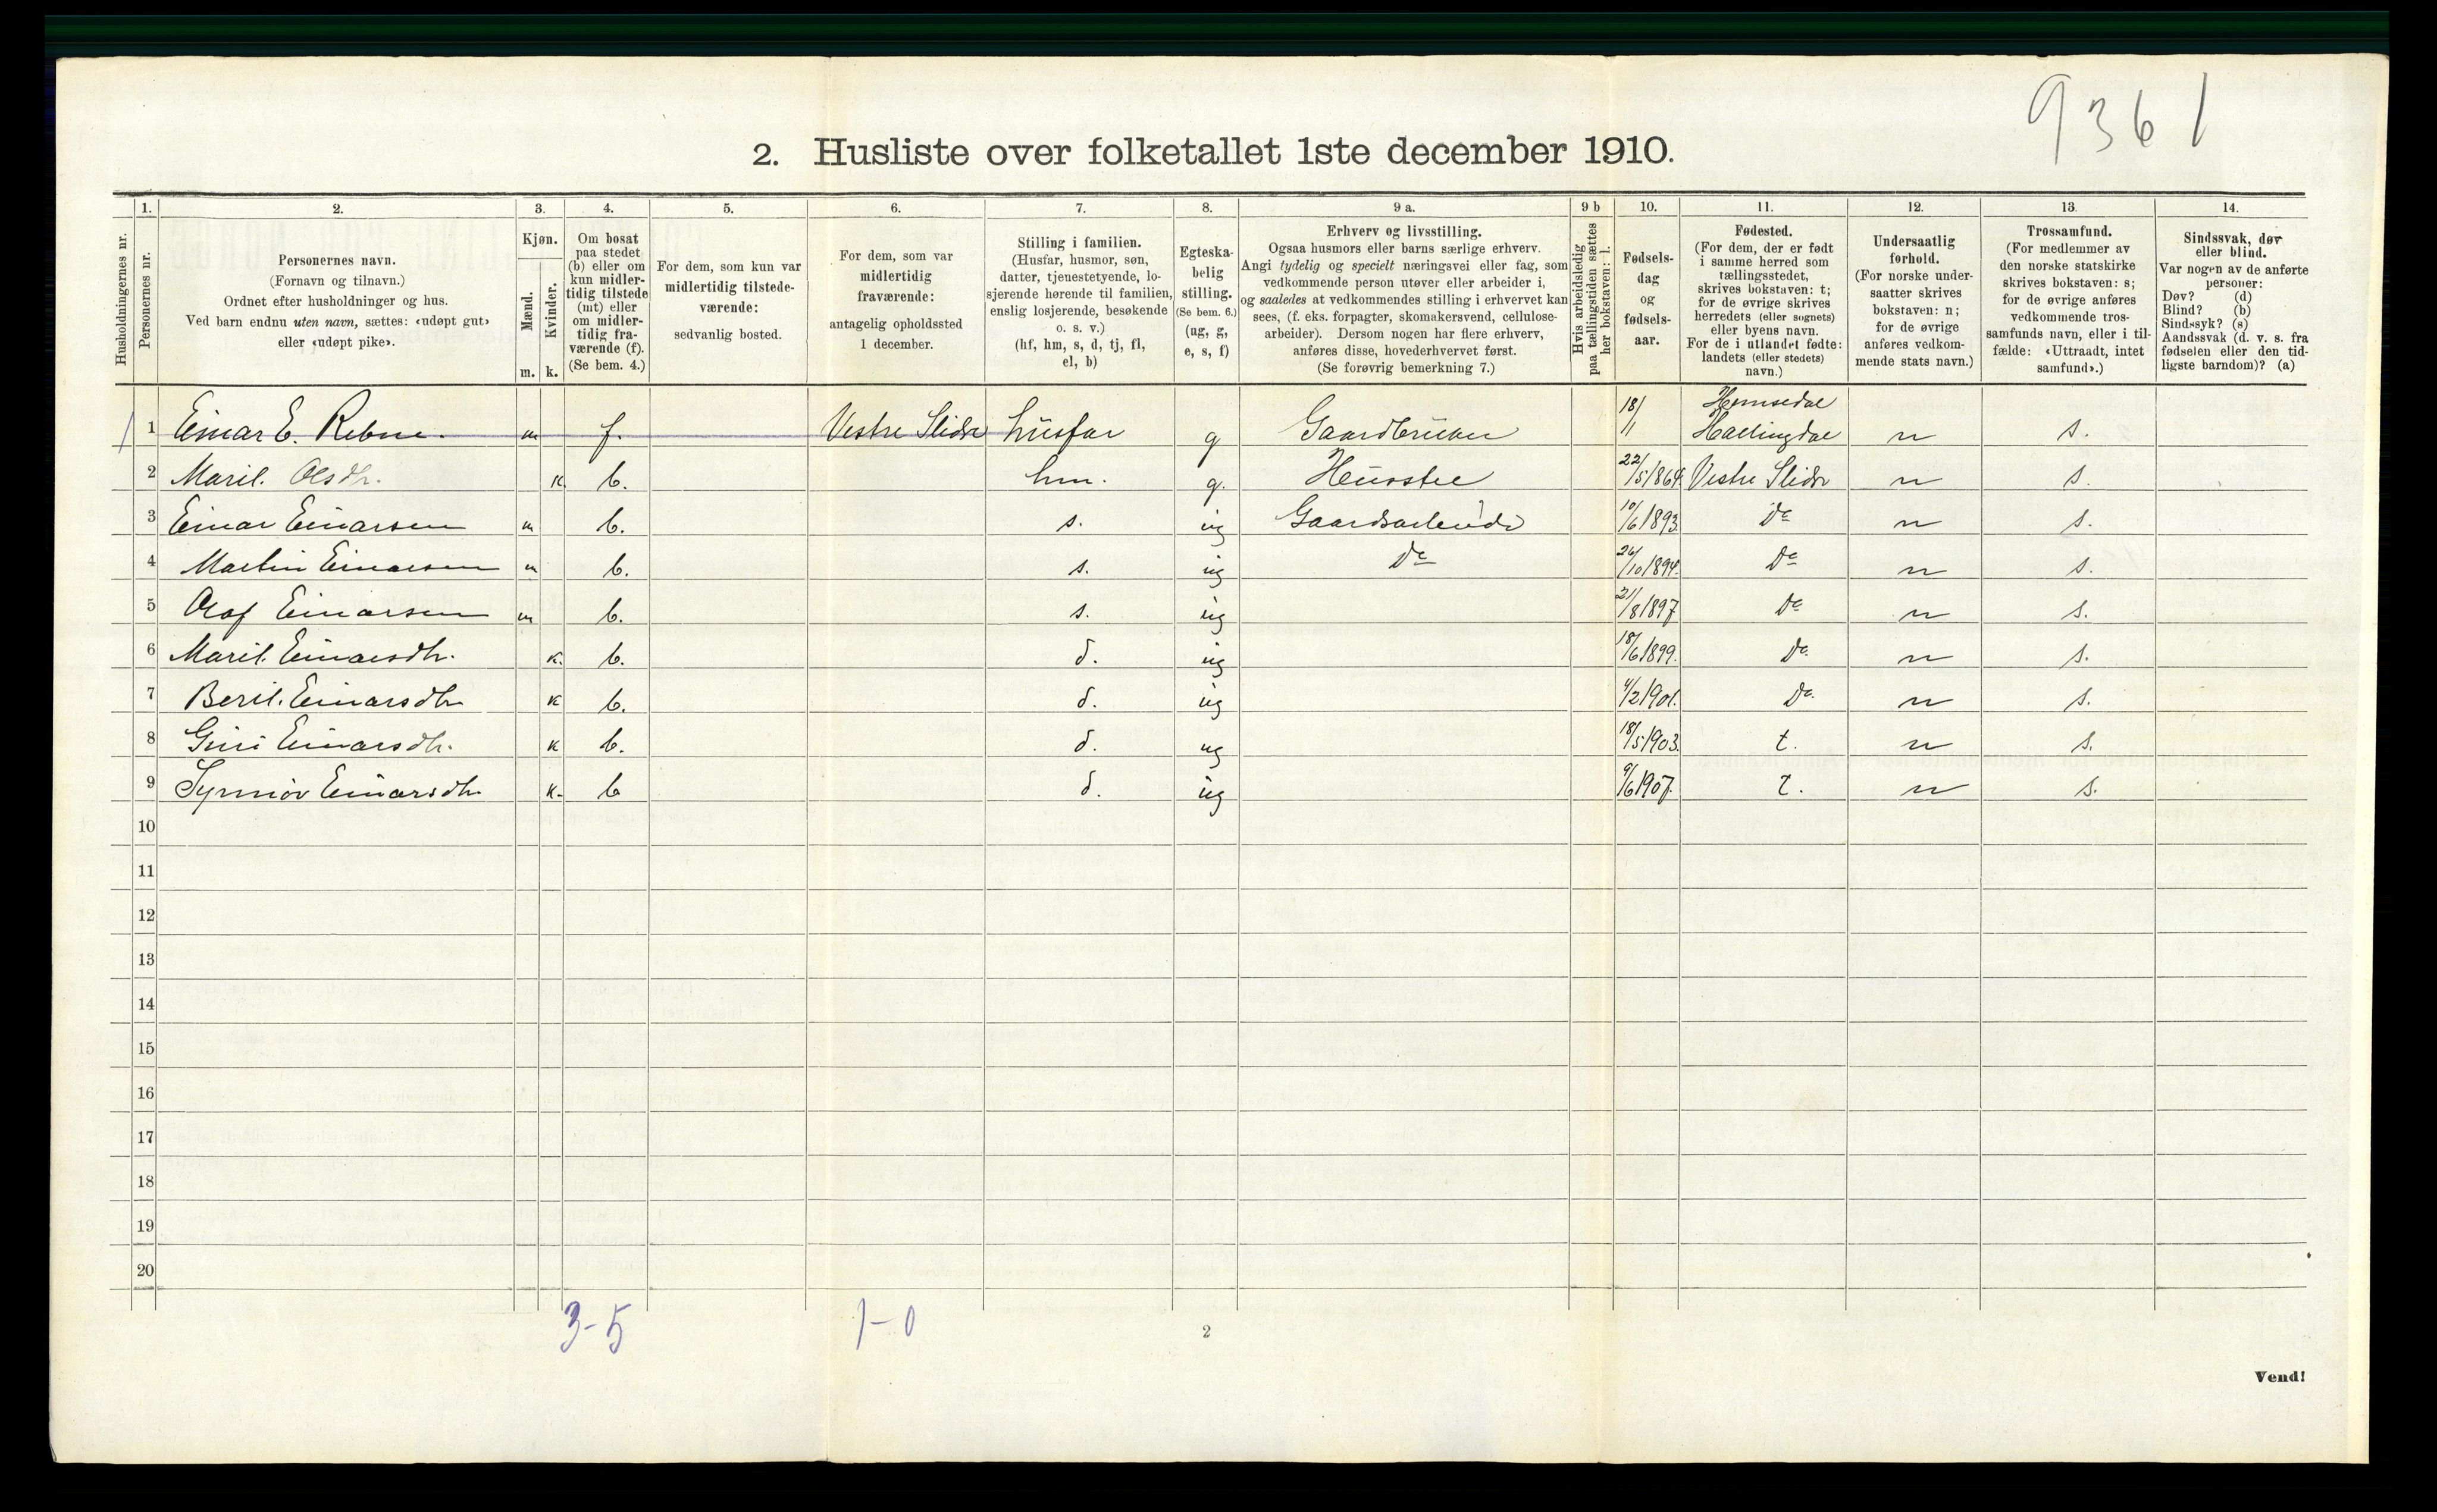 9361
2. Husliste over folketallet 1ste december 1910.
Husholdningernes nr.
1.
Personernes nr.
2.
Personernes navn.
(Fornavn og tilnavn.)
Ordnet efter husholdninger og hus.
Ved barn endnu uten navn, sættes: «udøpt gut»
eller «udøpt pike».
3.
Kjøn.
Mænd.
Kvinder.
m. k.
4.
Om bosat
paa stedet
(b) eller om
kun midler-
tidig tilstede
(mt) eller
om midler-
tidig fra-
værende (f).
(Se bem. 4.)
5.
For dem, som kun var
midlertidig tilstede-
værende:
sedvanlig bosted.
6.
For dem, som var
midlertidig
fraværende:
antagelig opholdssted
1 december.
7.
Stilling i familien.
(Husfar, husmor, søn,
datter, tjenestetyende, lo-
sjerende hørende til familien,
enslig losjerende, besøkende
o. s. v.)
(hf, hm, s, d, tj, fl,
el, b)
8.
Egteska-
belig
stilling.
(Se bem. 6.)
(ug, g,
e, s, f)
9 a.
Erhverv og livsstilling.
Ogsaa husmors eller barns særlige erhverv.
Angi tydelig og specielt næringsvei eller fag, som
vedkommende person utøver eller arbeider i,
og saaledes at vedkommendes stilling i erhvervet kan
sees, (f. eks. forpagter, skomakersvend, cellulose-
arbeider). Dersom nogen har flere erhverv,
anføres disse, hovederhvervet først.
(Se forøvrig bemerkning 7.)
9 b
Hvis arbeidsledig
paa tællingstiden sættes
her bokstaven: l.
10.
Fødsels-
dag
og
fødsels-
aar.
11.
Fødested.
(For dem, der er født
i samme herred som
tællingsstedet,
skrives bokstaven: t;
for de øvrige skrives
herredets (eller sognets)
eller byens navn.
For de i utlandet fødte:
landets (eller stedets)
navn.)
12.
Undersaatlig
forhold.
(For norske under-
saatter skrives
bokstaven: n;
for de øvrige
anføres vedkom-
mende stats navn.)
13.
Trossamfund.
(For medlemmer av
den norske statskirke
skrives bokstaven: s;
for de øvrige anføres
vedkommende tros-
samfunds navn, eller i til-
fælde: «Uttraadt, intet
samfund».)
14.
Sindssvak, døv
eller blind.
Var nogen av de anførte
personer:
Døv? (d)
Blind? (b)
Sindssyk? (s)
Aandssvak (d. v. s. fra
fødselen eller den tid-
ligste barndom)? (a)
1 1 Einar E. Rebne. m f. Vestre Slidre husfar g Gaardbruker 18/1 Hemsedal Hallingdal n s.
2 Marit Olsdtr. k b. hm. g. Husstel 22/5 1864 Vestre Slidre n s.
3 Einar Einarsen m b. s. ug Gaardsarbeide 10/6 1893. Do n s.
4 Martin Einarsen m b. s. ug Do 26/10 1894. Do n s.
5 Olaf Einarsen m b. s. ug 21/8 1897 Do n s.
6 Marit Einarsdtr. k. b. d. ug 18/6 1899. Do n s.
7 Berit Einarsdtr k b. d. ug 4/2 1901. Do n s.
8 Guri Einarsdtr. k b. d. ug 18/5 1903. t. n s.
9 Synnøv Einarsdtr. k. b d. ug 9/6 1907. t. n s.
10
11
12
13
14
15
16
17
18
19
20
3-5 1-0
2
Vend!